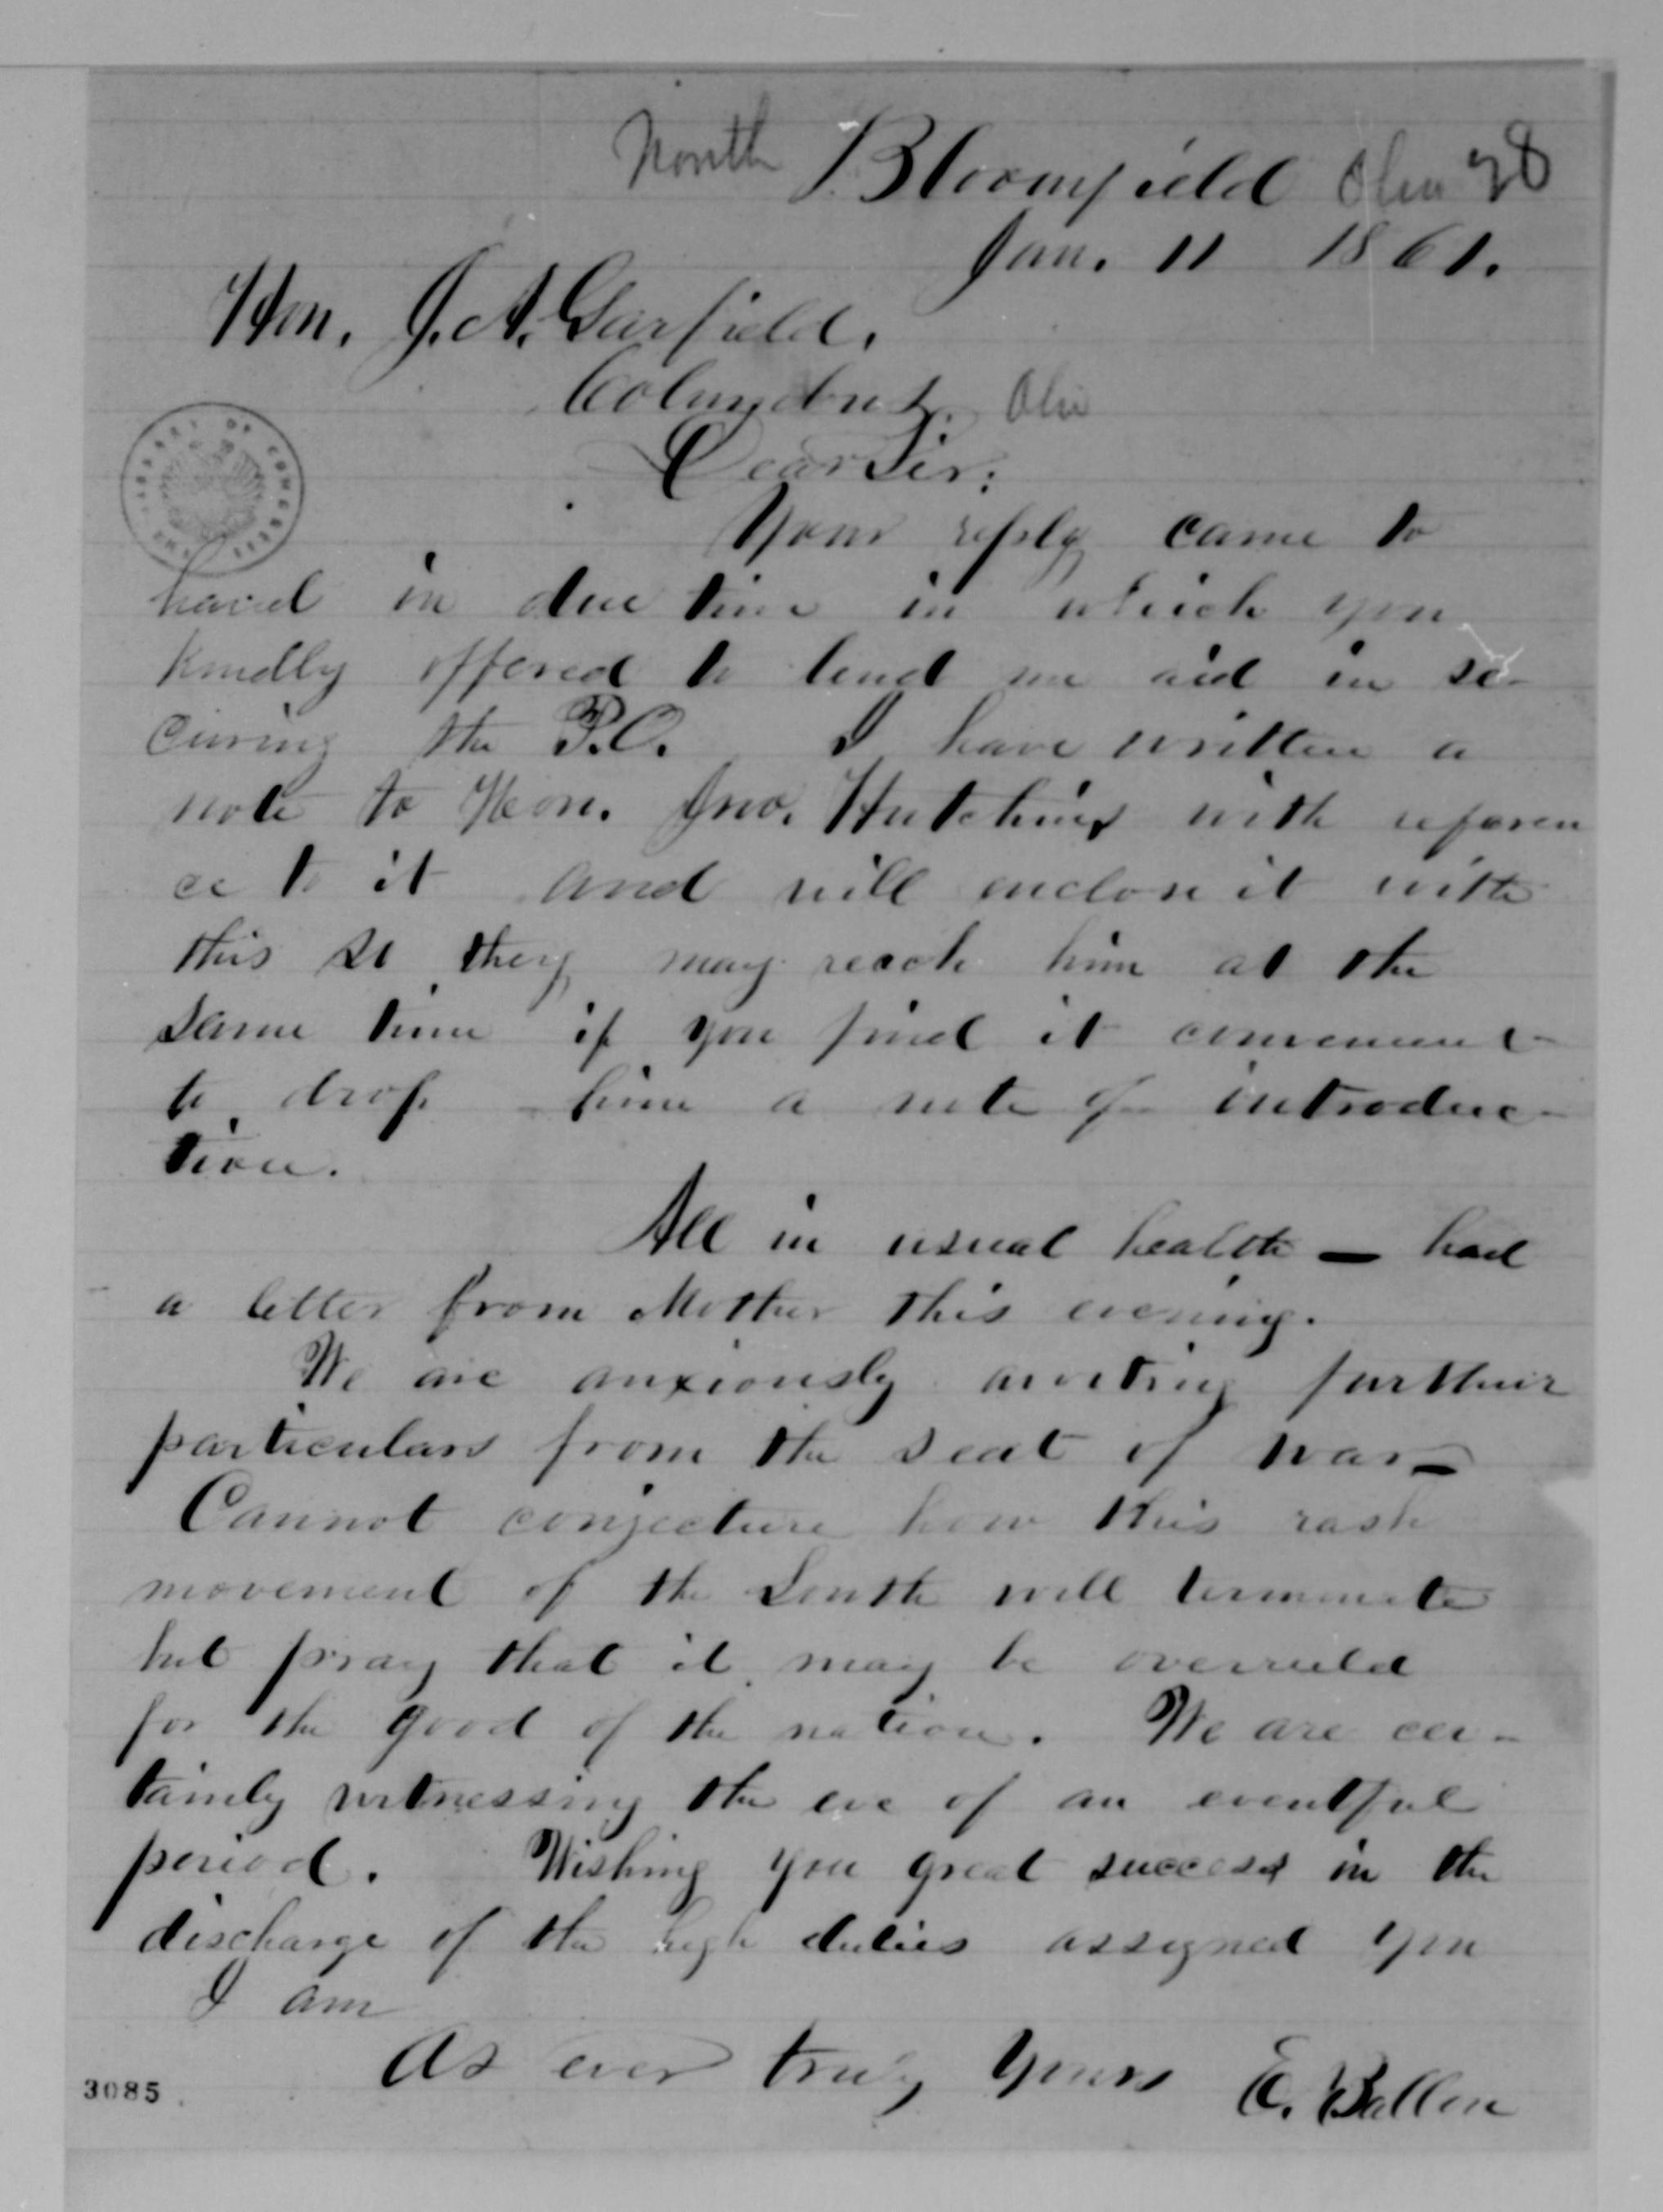 North Bloomfield Ohio 28
Jan. 11 1861.
Hon. J. A. Garfield,
Columbus. Ohio
Dear Sir:
Your reply came to
hand in due time in which you
kindly offered to lend me aid in se-
curing the P.O. I have written a
note to Hon. Jno. Hutchins with referen
ce to it and will enclose it with
this so they may reach him at the
same time if you find it convenient
to drop him a note of introduc-
tion.
All in usual health — had
a letter from Mother this evening.
We are anxiously awaiting further
particulars from the seat of war —
Cannot conjecture how this rash
movement of the South will terminate
but pray that it may be overruled
for the good of the nation. We are cer-
tainly witnessing the eve of an eventful
period. Wishing you great success in the
discharge of the high duties assigned you
I am
As ever truly yours E. Ballou
3085
LIBRARY OF CONGRESS